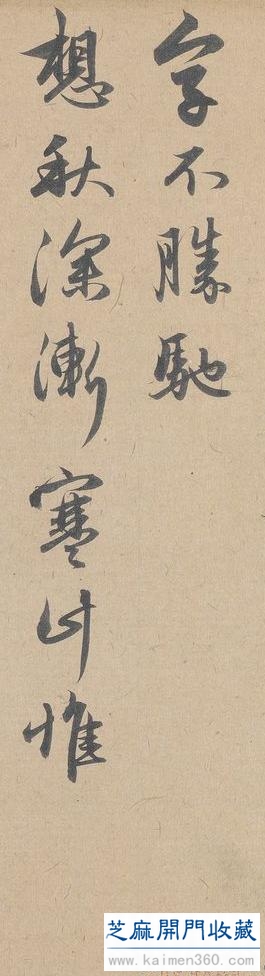 字不勝馳
想秋深漸寒計惟
芝麻開門收藏
www.kaimen360.com